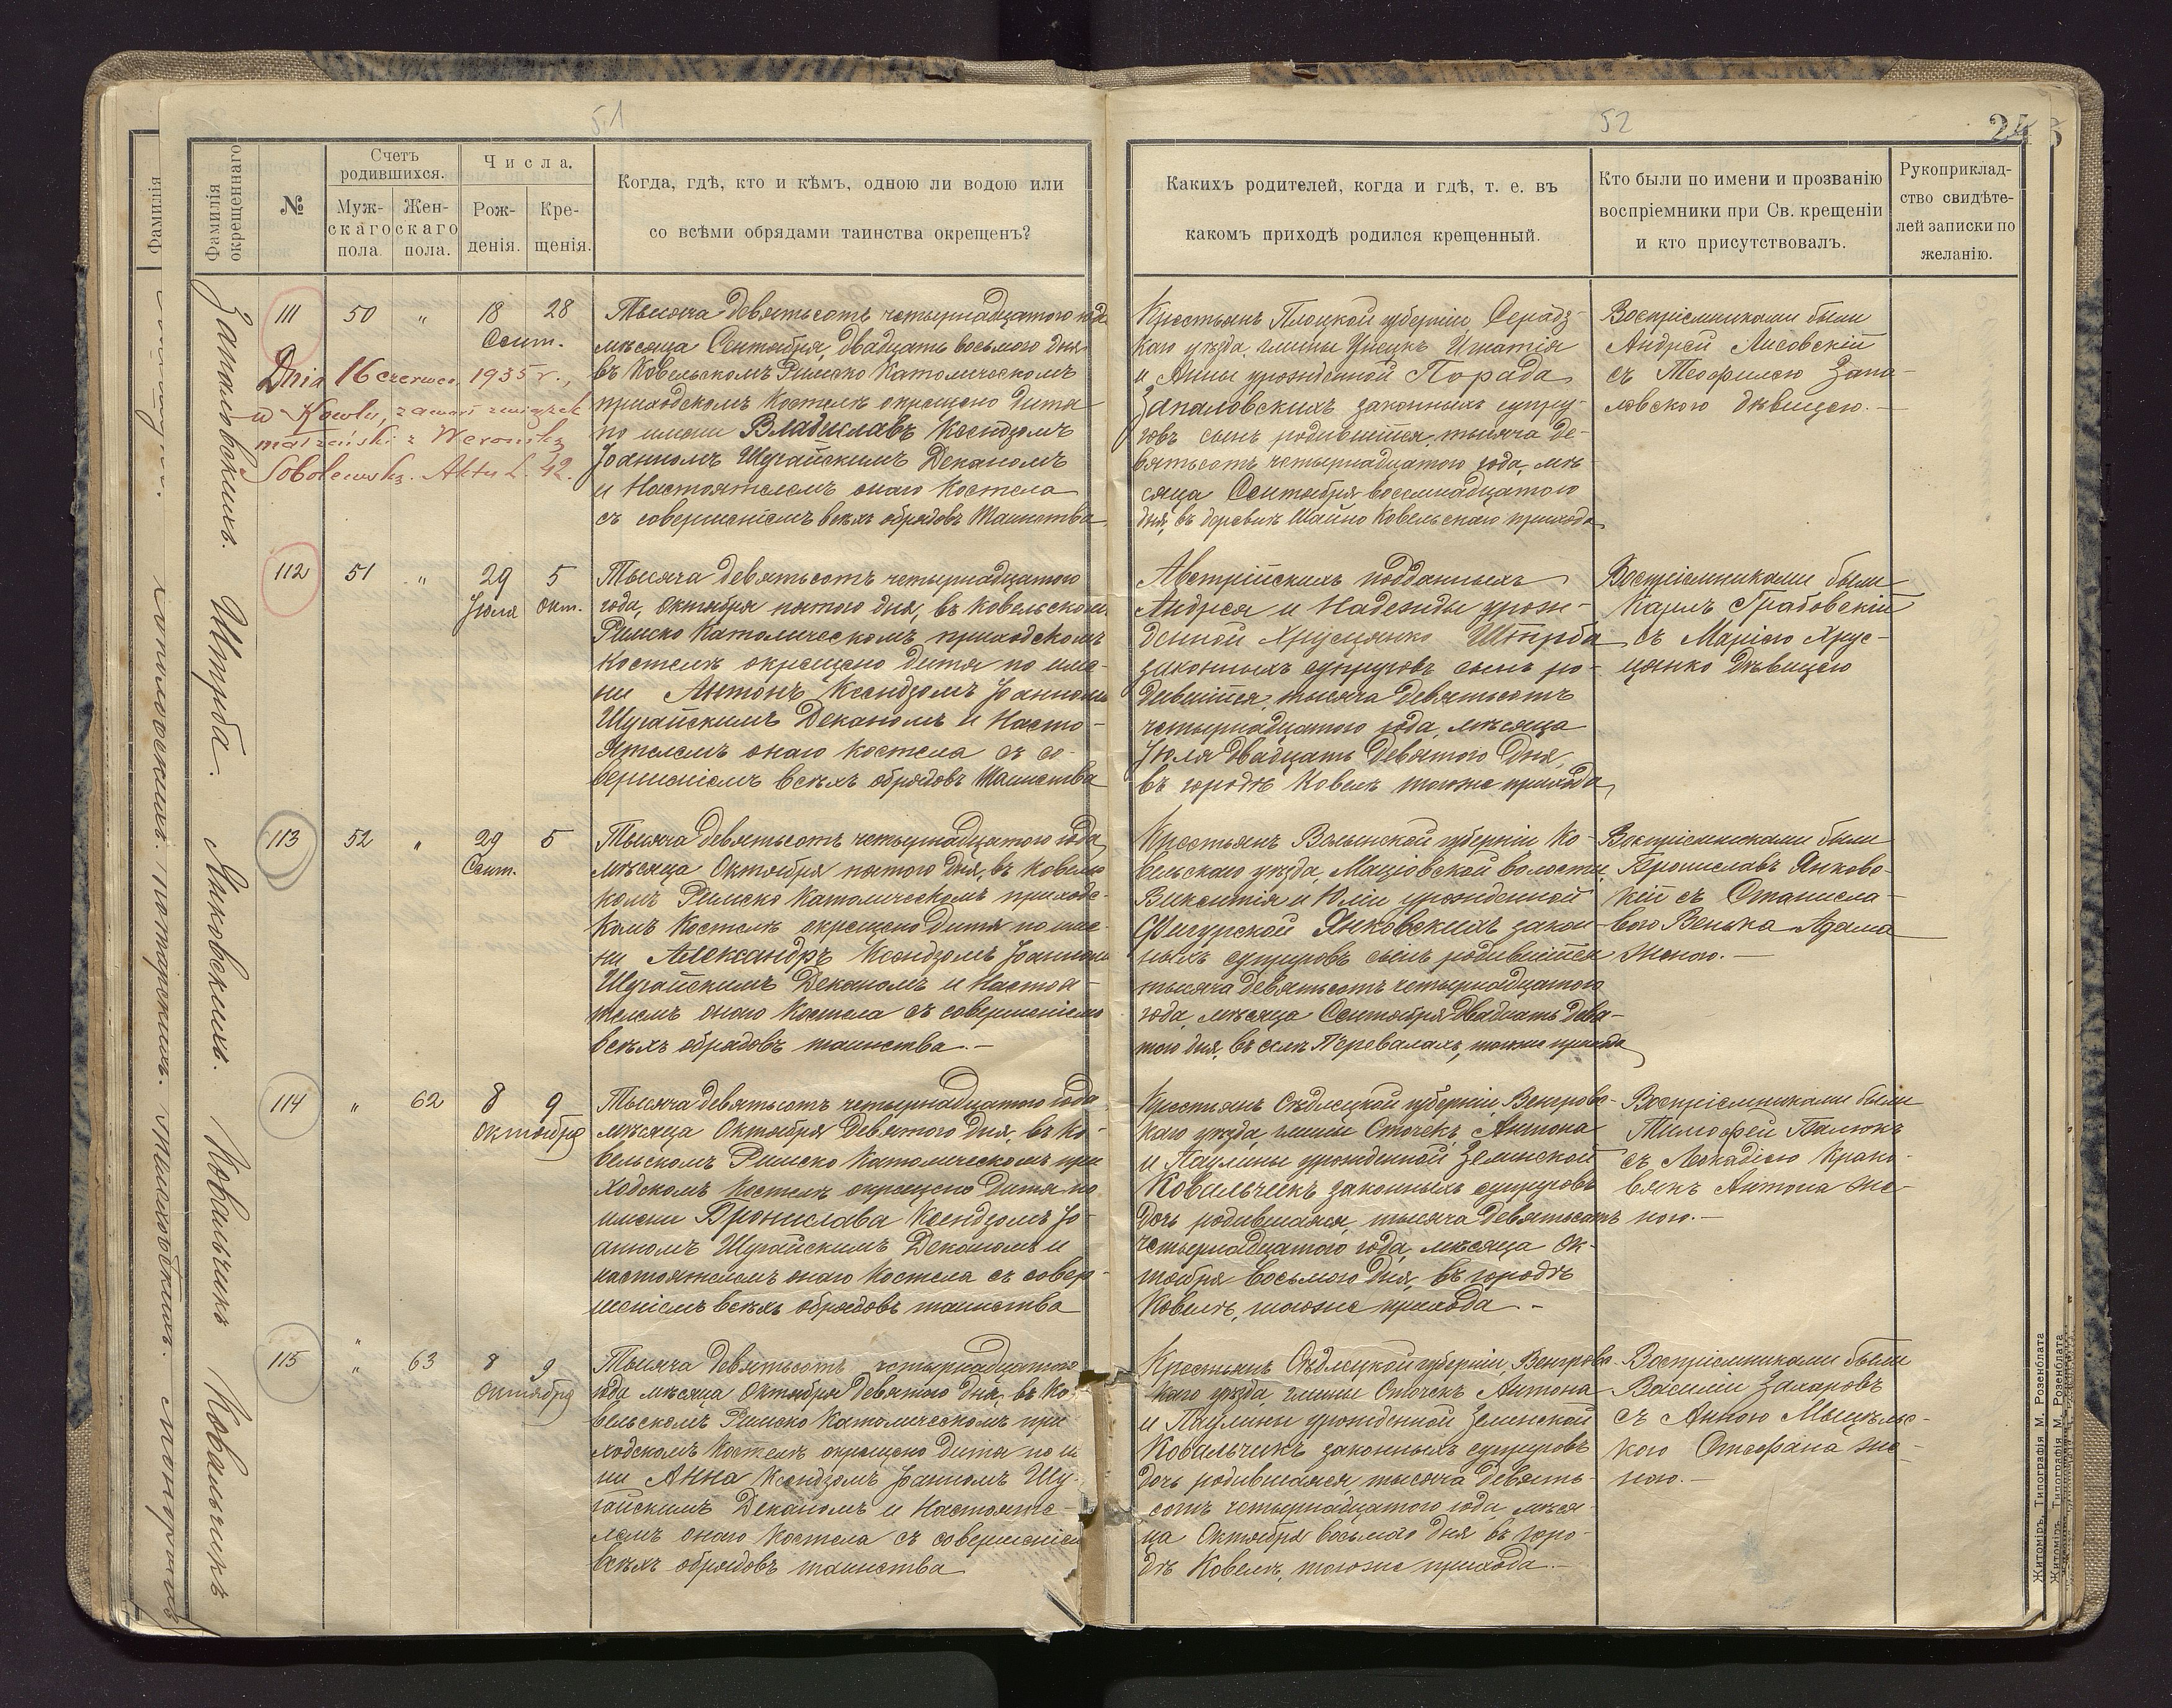 51
52
24
Фамилія
Фамилія окрещеннаго
№
Счетъ родившихся.
Мужскаго пола
Женскаго пола.
Числа.
Рожденія.
Крещенія.
Когда, гдѣ, кто и кѣмъ, одною ли водою или
со всѣми обрядами таинства окрещенъ?
Какихъ родителей, когда и гдѣ, т. е. въ
какомъ приходѣ родился крещенный.
Кто были по имени и прозванію
воспріемники при Св. крещеніи
и кто присутствовалъ.
Рукоприклад-
ство свидѣте-
лей записки по
желанію.
Запаловскихъ.
111 50 " 18 28
Сент.
Dnia 16 czerwca 1935 r.,
w Kowlu, zawarł związek
małżeński z Weroniką
Sobolewską. Aktu L. 42.
Тысяча девятьсотъ четырнадцатого года
мѣсяца Сентября, двадцать восьмого дня
въ Ковельскомъ Римско Католическомъ
приходскомъ Костелѣ окрещено дитя
по имени Владиславъ Ксендзомъ
Іоанномъ Шугайскимъ Деканомъ
и Настоятелемъ онаго Костела
съ совершеніемъ всѣхъ обрядовъ Таинства
Крестьянъ Плоцкой губерніи, Серадз-
каго уѣзда, гмины Игнатія
и Анны урожденной Порада
Запаловскихъ законныхъ супру-
говъ сынъ родившійся тысяча де-
вятьсотъ четырнадцатого года, мѣ-
сяца Сентября восемнадцатого
дня, въ деревнѣ Шайно Ковельскаго прихода
Воспріемниками были
Андрей Лисовскій
съ Теофилею Запа-
ловскою дѣвицею.—
Штрба.
112 51 " 29 5
Іюля Окт.
Тысяча девятьсотъ четырнадцатого
года, Октября пятого дня, въ Ковельском
Римско Католическомъ приходскомъ
Костелѣ окрещено дитя по име-
ни Антонъ Ксендзомъ Іоанномъ
Шугайскимъ Деканомъ и Насто-
ятелемъ онаго Костела съ со-
вершеніемъ всѣхъ обрядовъ Таинства
Австрійскихъ подданныхъ
Андрея и Надежды урож-
денной Хрусцянко Штрба
законныхъ супруговъ сынъ ро-
дившійся, тысяча девятьсотъ
четырнадцатого года, мѣсяца
Іюля двадцать девятого дня,
въ городѣ Ковелѣ тогоже прихода,
Воспріемниками были
Карлъ Грабовскій
съ Маріею Хрус-
цянко Дѣвицею
Янковскихъ.
113 52 " 29 5
Сент.
Тысяча девятьсотъ четырнадцатого года
мѣсяца Октября пятого дня, въ Ковельс
комъ Римско Католическомъ приходс-
комъ Костелѣ окрещено Дитя по име-
ни Александръ Ксендзомъ Іоанном
Шугайскимъ Деканомъ и Настоя-
телемъ онаго Костела съ совершеніемъ
всѣхъ обрядовъ таинства.—
Крестьянъ Волынской губерніи Ко-
вельскаго уѣзда, Маціовской волости,
Викентія и Юліи урожденной
Фигурской Янковскихъ закон-
ныхъ супруговъ сынъ родившійся
тысяча девятьсотъ четырнадцатого
года, мѣсяца Сентября двадцать девя-
того дня, въ селѣ Перевалахъ, тогоже прихода
Воспріемниками были
Брониславъ Янковс-
кій съ Станисла-
вою Венька Адама
женою.—
Ковальчикъ
114 " 62 8 9
Октября
Тысяча девятьсотъ четырнадцатого года
мѣсяца Октября девятого дня, въ Ко-
вельскомъ Римско Католическомъ при
ходскомъ Костелѣ окрещено дитя по
имени Бронислава Ксендзомъ Іо-
анномъ Шугайскимъ Деканомъ и
настоятелемъ онаго Костела съ совер-
шеніемъ всѣхъ обрядовъ таинства
Крестьянъ Сѣдлецкой губерніи, Венгровс-
каго уѣзда, гмины Сточекъ, Антона
и Паулины урожденной Землиской
Ковальчикъ законныхъ супруговъ
дочь родившаяся, тысяча девятьсотъ
четырнадцатого года, мѣсяца Ок-
тября восьмого дня, въ городѣ
Ковелѣ, тогоже прихода.—
Воспріемниками были
Тимофей Балюкъ
съ Леокадіею Крако-
вякъ Антона же-
ною.—
Ковальчикъ
115 " 63 8 9
Октября
Тысяча девятьсотъ четырнадцатого
года мѣсяца Октября девятого дня, въ Ко-
вельскомъ Римско Католическомъ при
ходскомъ Костелѣ окрещено дитя по и
ни Анна Ксендзомъ Іоанномъ Шу-
гайскимъ Деканомъ и Настояте-
лемъ онаго Костела съ совершеніем
всѣхъ обрядовъ таинства
Крестьянъ Сѣдлецкой губерніи, Венгровс-
каго уѣзда, гмины Сточекъ Антона
и Паулины урожденной Землиской
Ковальчикъ законныхъ супруговъ
дочь родившаяся, тысяча девять-
сотъ четырнадцатого года, мѣся-
ца Октября восьмого дня въ горо-
дѣ Ковелѣ, тогоже прихода.—
Воспріемниками были
Василій Захаровъ
съ Анною
кою Стефана же-
ною.—
Житоміръ, Типографія М. Розенблата
Житоміръ, Типографія М. Розенблата